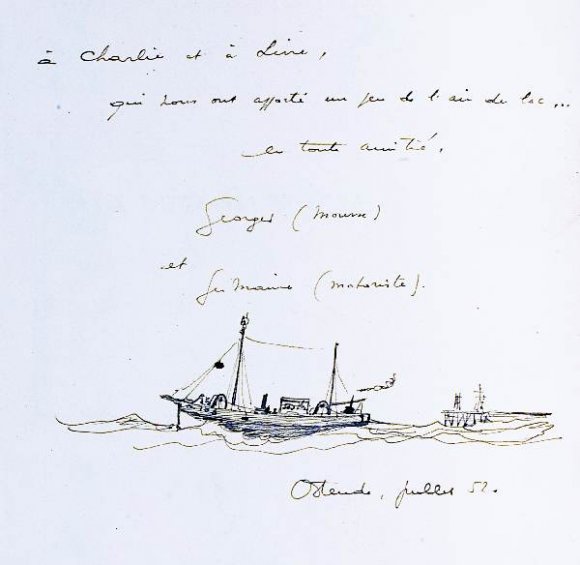 à Charlie et à Line,
qui nous ont apporté un peu de l'air du lac...
en toute amitié,
Georges (mousse)
et
Germaine (motoriste).
Ostende, juillet 52.